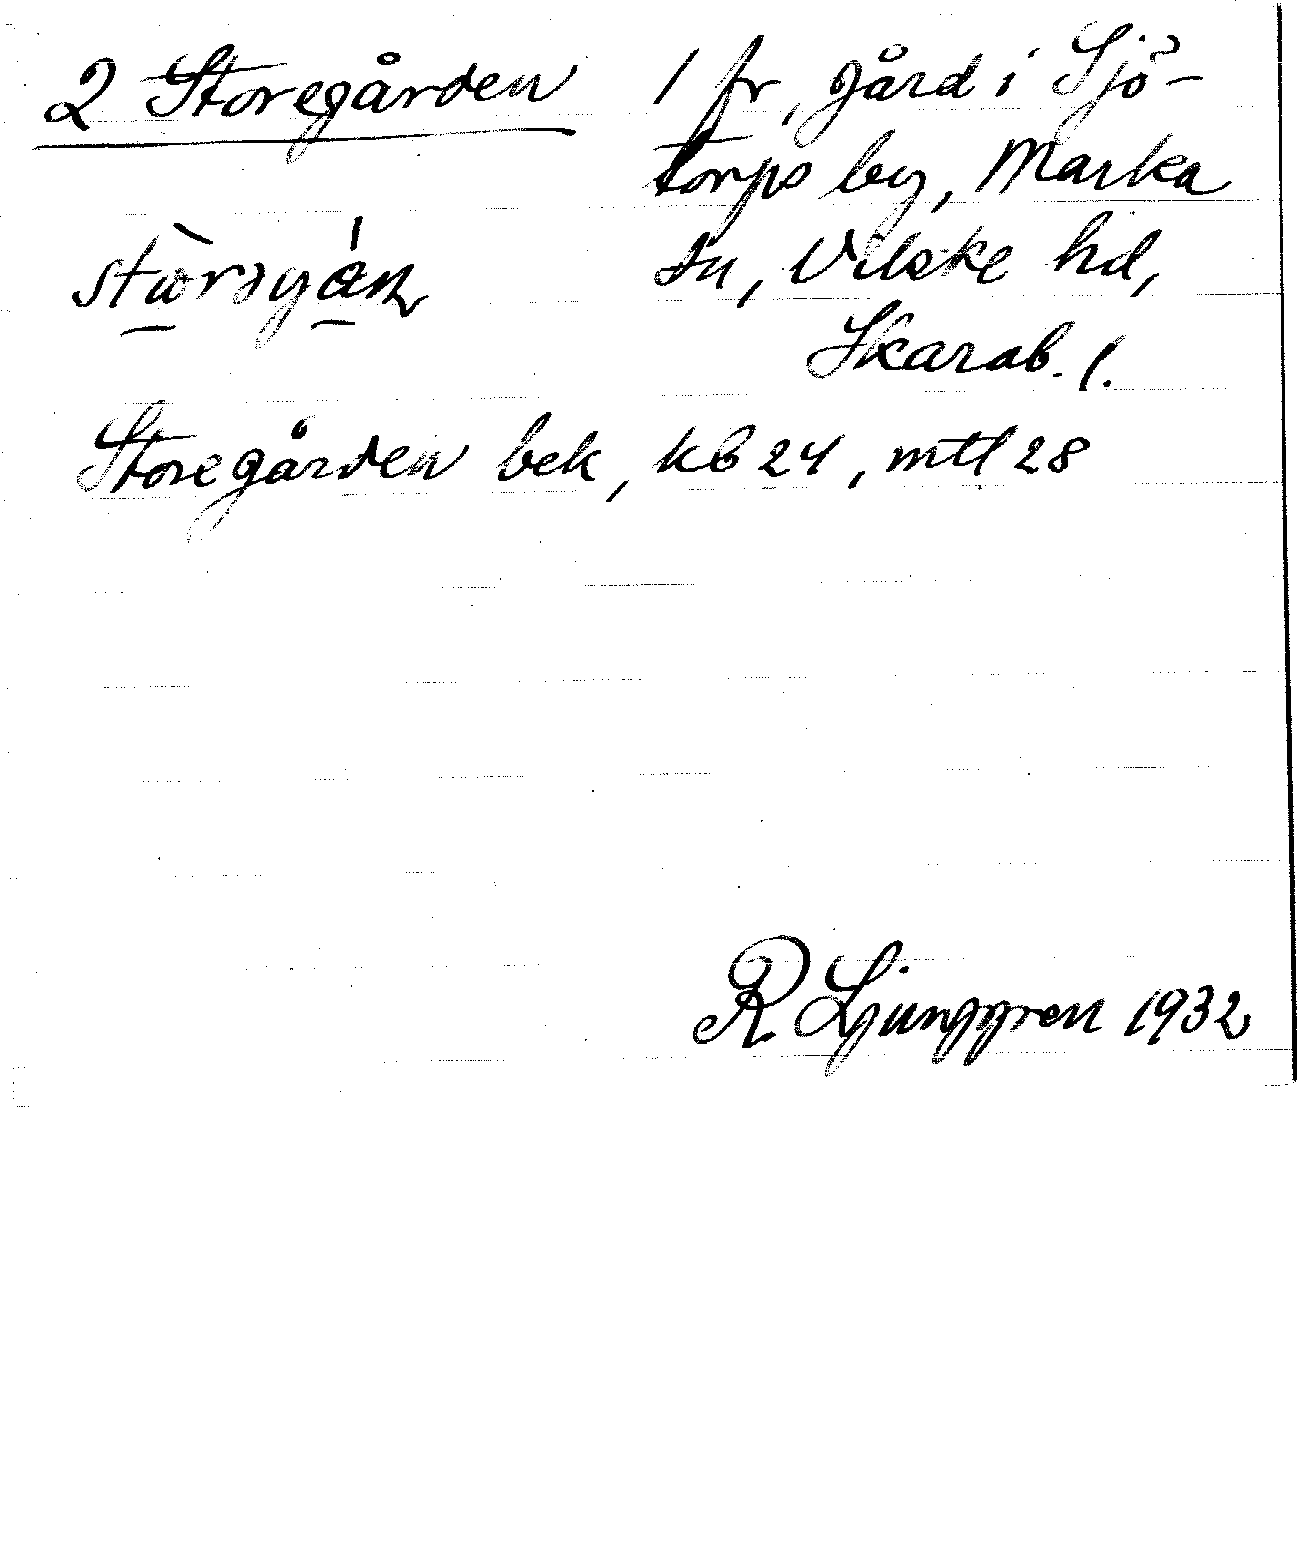 2 Storegården
1 fr, gård i Sjö-
torps by, Marka
sn, Vilske hd,
Skarab. l.
Storegården bek, kb 24, mtl 28
R Ljunggren 1932